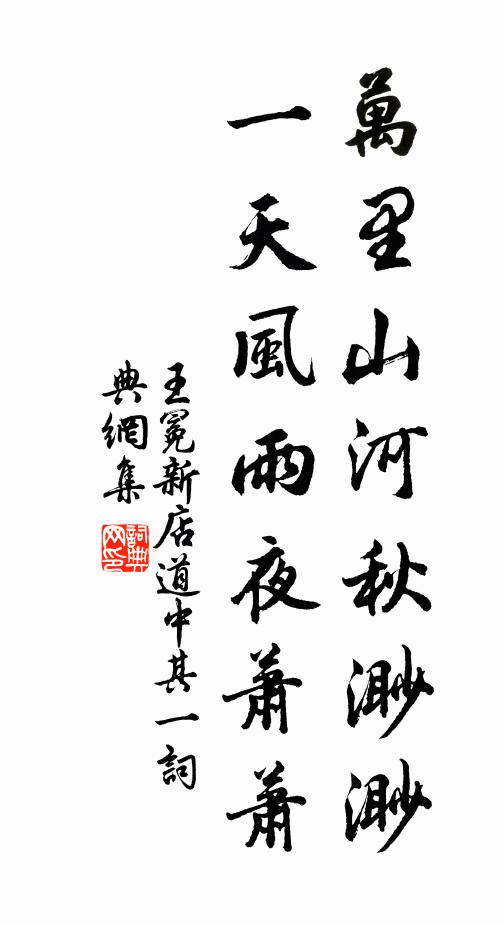 萬里山河秋渺渺
一天風雨夜蕭蕭
王冕新店道中其一詞
典網集
詞典網印